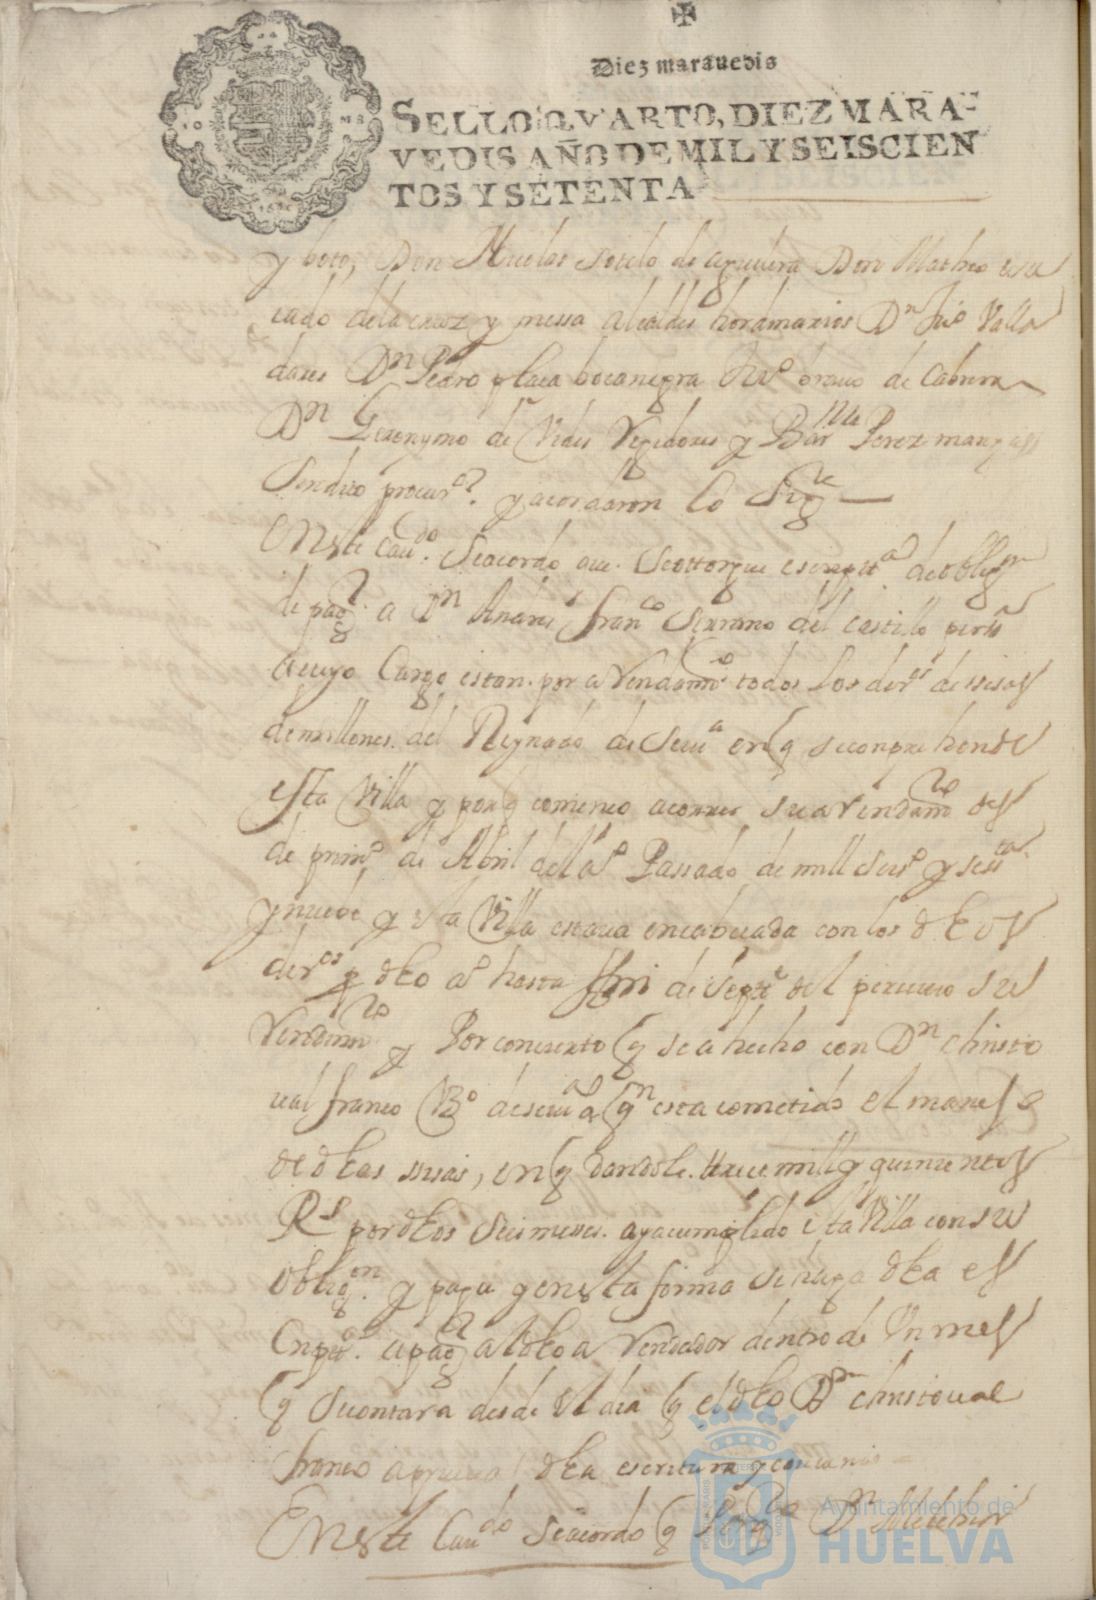 Diez marauedis
SELLO QVARTO, DIEZ MARA-
VEDIS AÑO DE MIL Y SEISCIEN
TOS Y SETENTA
y boto, Don Nicolas sotelo de aguilera Don Matheo
cado dela cruz y messa alcaldes hordinarios Dn Juo Valla
dares Dn Pedro placa bocanegra Juo brauo de Cabrera
Dn Geronymo de Vides Regidores y Barme Perez
Sindico procur. y acordaron lo Sigte
En este Caudo. Se acordo que. Se ottorgue escriptta de oblign
de pago. a Dn Andres franco Serrano del castillo
a cuyo Cargo estan. por a Rendamto todos los ders de sisas
de millones. del Reynado de Seua en q se conprehende
esta Villa y porq comenco a correr su a rendamto des
de primo de Abril del ao Passado de mill seiso y sesta
y nueue y esta Villa estaua encabecada con los dhos
deros dho ao hasta fin de septe del
Rendamto y Por concierto q se a hecho con Dn christo
ual franco Vo de seua a qn esta cometido el manejo
de dhas sisas, en q dandole. trece mill y quinientos
Rs por dhos seis messes. aya cumplido esta Villa con su
oblign. y paga y en esta forma se haga dha es
criptra. a pagar al dho a Rendador dentro de Un mes
q se contara desde el dia q el dho Dn christoual
franco aprueua dha escritura
En este Caudo se acordo q Dn Melchior
Ayuntamiento de
HUELVA